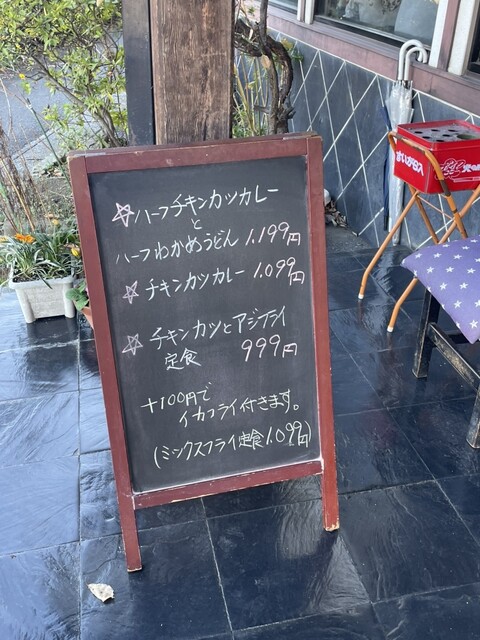 ☆ハーフチキンカツカレー
と
ハーフわかめうどん 1,199円
☆チキンカツカレー 1,099円
☆チキンカツとアジフライ
定食 999円
+100円で
イカフライ付きます。
(ミックスフライ定食1,099円)
すいがら入